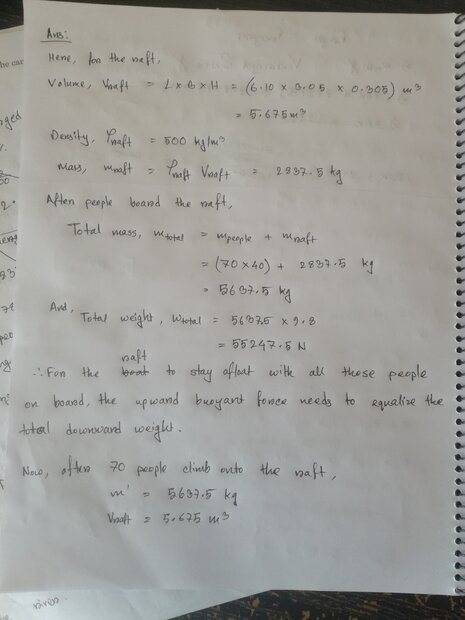 Ans:
Here, for the raft,
Volume, Vraft = L x B x H = (6.10 x 3.05 x 0.305) m³
= 5.675 m³
Density, ρraft = 500 kg/m³
Mass, mraft = ρraft Vraft = 2837.5 kg
After people board the raft,
Total mass, mtotal = mpeople + mraft
= (70x40) + 2837.5 kg
= 5637.5 kg
And,
Total weight, Wtotal = 5637.5 x 9.8
= 55247.5 N
raft
∴ For the boat to stay afloat with all these people
on board, the upward buoyant force needs to equalize the
total downward weight.
Now, after 70 people climb onto the raft,
m' = 5637.5 kg
Vraft = 5.675 m³